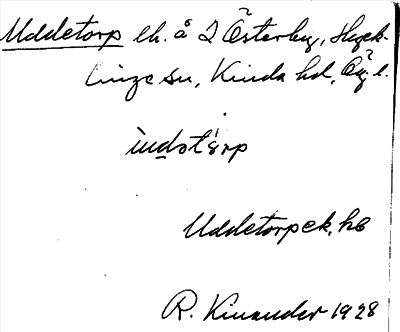 Uddetorp lh. å 2 Österby, Hyck-
linge sn, Kinda hd, Ög l.
ùdǝtórp
Uddetorpek, hb
R. Kinander 1928